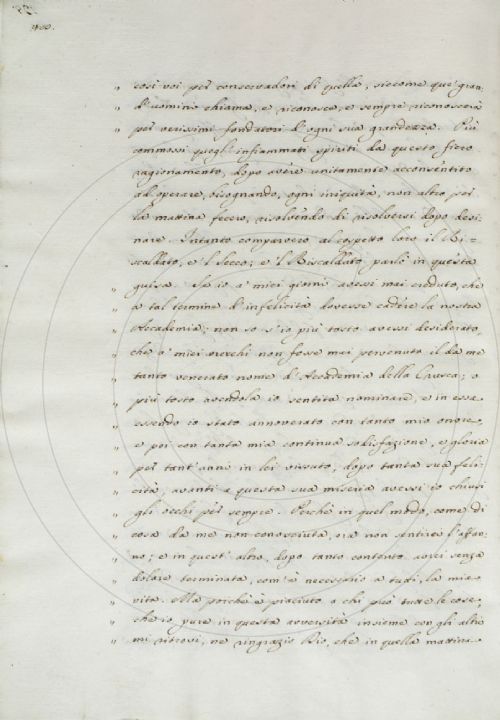 400.
„ così voi per conservadori di quella, siccome que' gran
„ d'uomini chiama, e riconosce, e sempre riconoscerà
„ per verissimi fondatori d'ogni sua grandezza. Più
commossi quegl' infiammati spiriti da questo fiero
ragionamento, dopo avere unitamente acconsentito
ad operare, bisognando, ogni iniquità, non altro poi
la mattina fecero, risolvendo di risolversi dopo desi-
nare. Intanto comparvero al cospetto loro il Ri-
scaldato, e 'l Secco; e 'l Riscaldato parlò in questa
guisa. Se io a' miei giorni avessi mai creduto, che
„ a tal termine d'infelicità dovesse cadere la nostra
„ Accademia; non so s'io più tosto avessi desiderato,
„ che a' miei orecchi non fosse mai pervenuto il da me
„ tanto venerato nome d'Accademia della Crusca; o
„ più tosto avendola io sentita nominare, e in essa
„ essendo io stato annoverato con tanto mio onore,
„ e poi con tanta mia continua sodisfazione, e gloria
„ per tant' anni in lei vissuto, dopo tanta sua feli-
„ cità, avanti a questa sua miseria avessi io chiusi
„ gli occhi per sempre. Perchè in quel modo, come di
„ cosa da me non conosciuta, ora non sentirei l'affan-
„ no; e in quest' altro, dopo tanto contento avrei senza
„ dolore terminata, com' è necessario a tutti, la mia
„ vita. Ma poichè è piaciuto a chi può tutte le cose,
„ che io pure in questa avversità insieme con gli altri
„ mi ritrovi, ne ringrazio Dio, che in quella mattina